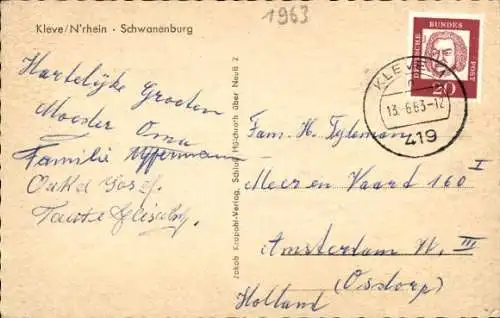 1963
Kleve/N'rhein · Schwanenburg
Hartelijke Groeten
Moeder Oma
Familie
Onkel Josef.
Tante Elisabeth.
Jakob Krapohl-Verlag, Schloß Hülchrath über Neuß 2
DEUTSCHE BUNDESPOST
20
KLEVE
13.-6.63-12
419
Fam. H. Tyleman
Meer en Vaart 160 I
Amsterdam W. III
(Osdorp)
Holland